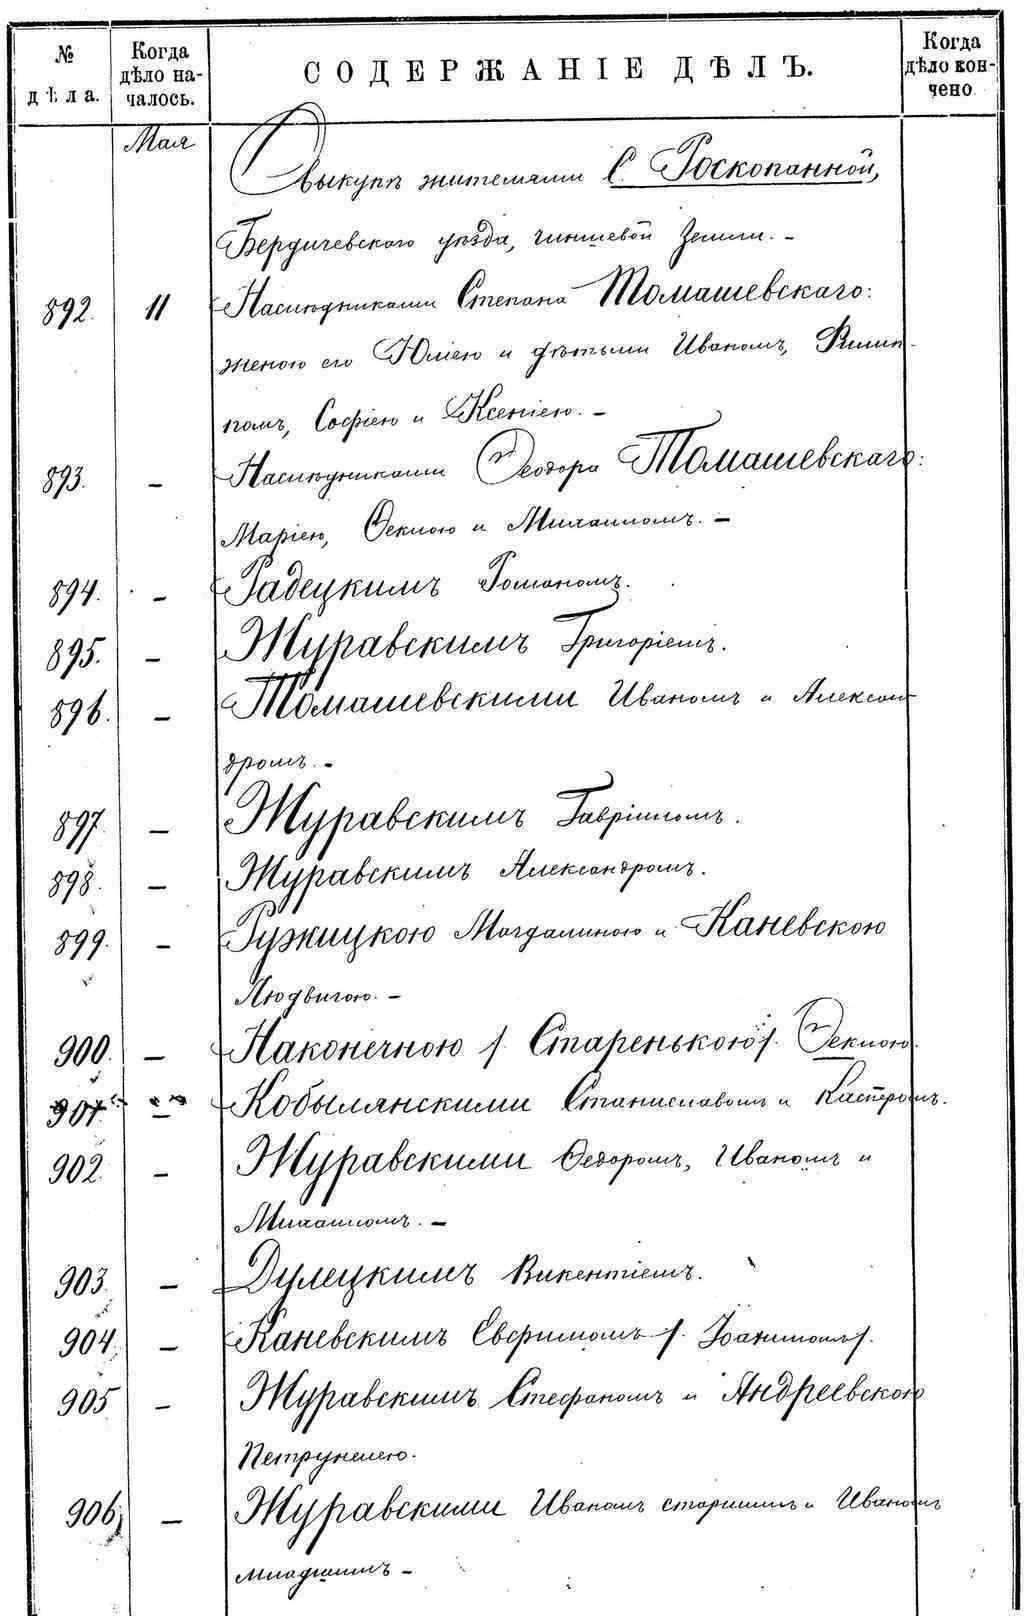 № дѣла.
Когда дѣло началось.
СОДЕРЖАНІЕ ДѢЛЪ.
Когда дѣло кончено
Мая
О выкупѣ жителями С. Роскопанной,
Бердичевскаго уѣзда, чиншевой земли. -
892. 11 Наслѣдниками Степана Томашевскаго:
женою его Юліею и дѣтьми Иваномъ, Филип-
помъ, Софіею и Ксеніею. -
893. - Наслѣдниками Ѳеодора Томашевскаго:
Маріею, Ѳеклою и Михаиломъ. -
894. - Радецкимъ Романомъ.
895. - Журавскимъ Григоріемъ.
896. - Томашевскими Иваномъ и Алексан-
дромъ. -
897. - Журавскимъ Гавріиломъ.
898. - Журавскимъ Александромъ.
899. - Ружицкою Магдалиною и Каневскою
Людвигою. -
900. - Наконечною /. Старенькою /. Ѳеклою.
901. - Кобылянскими Станиславомъ и Касперомъ.
902. - Журавскими Ѳедоромъ, Иваномъ и
Михаиломъ. -
903. - Дулецкимъ Викентіемъ.
904. - Каневскимъ Евфримомъ /. Іоахимомъ /.
905 - Журавскимъ Стефаномъ и Андреевскою
Петрунелею.
906 - Журавскими Иваномъ старшимъ и Иваномъ
младшимъ -